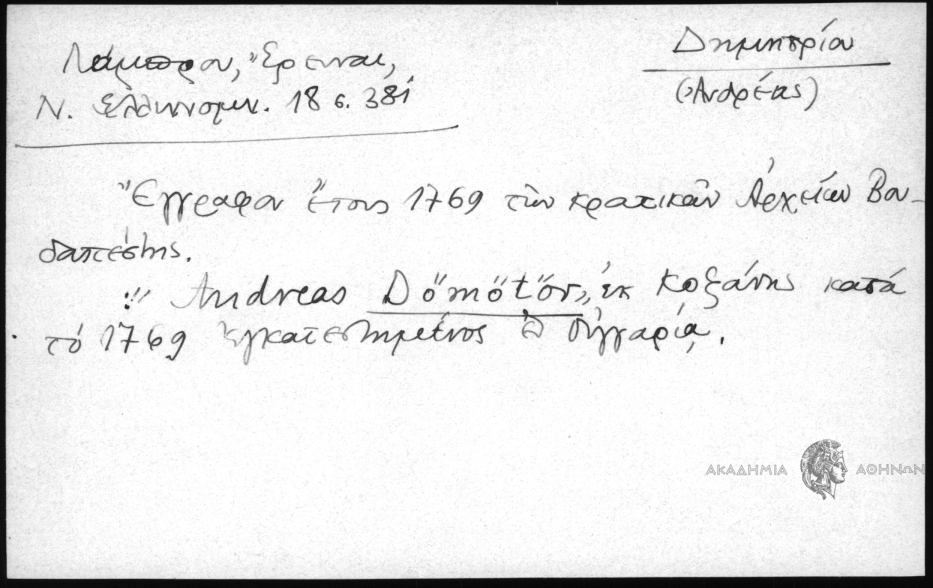 Λάμπρου, Ἔρευναι,
Ν. Ἑλληνομν. 18 σ. 381
Δημητρίου
(Ἀνδρέας)
Ἔγγραφον ἔτους 1769 τῶν κρατικῶν Ἀρχείων Βου-
δαπέστης.
:" Andreas Dömötör», ἐκ Κοζάνης κατὰ
τὸ 1769 ἐγκατεστημένος ἐν Οὑγγαρίᾳ.
ΑΚΑΔΗΜΙΑ ΑΘΗΝΩΝ